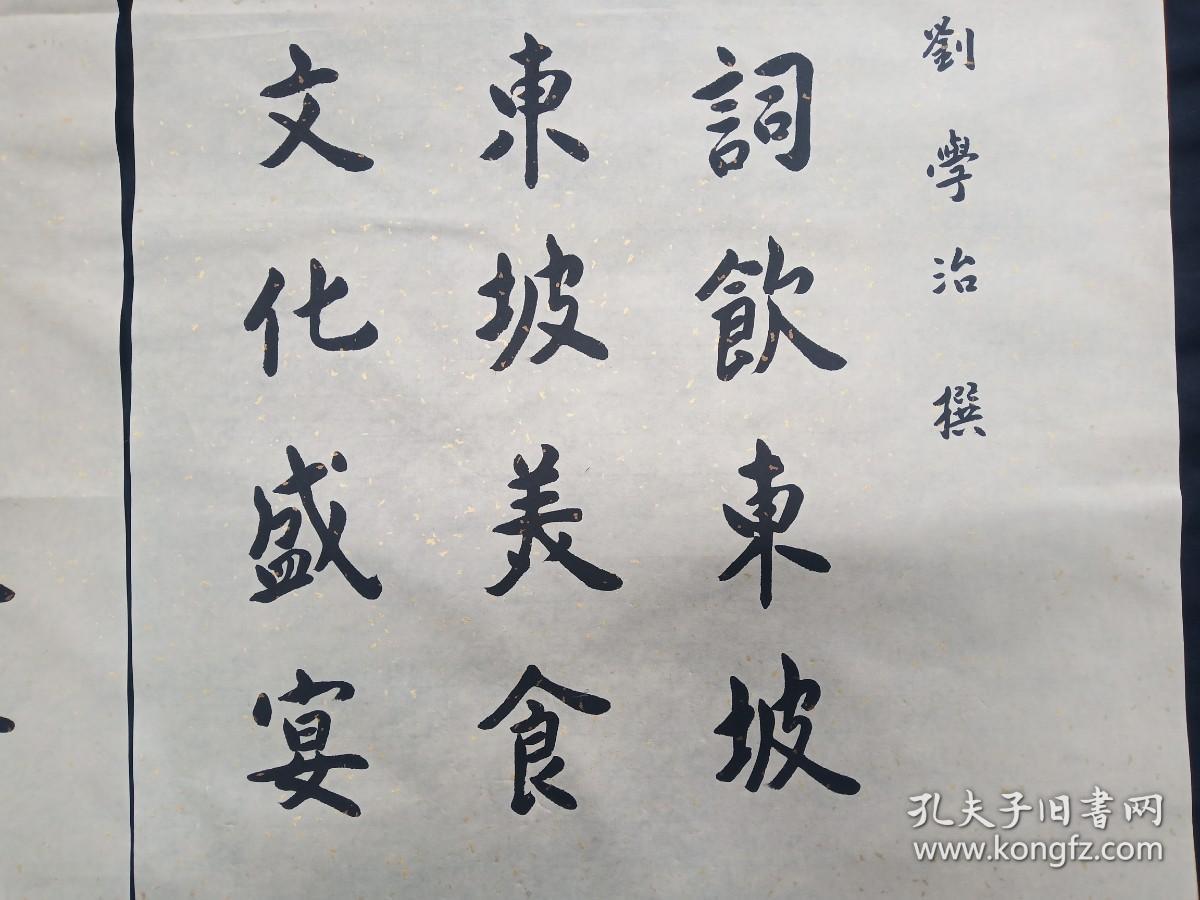 劉學治撰
詞飲東坡
東坡美食
文化盛宴
孔夫子旧書网
www.kongfz.com